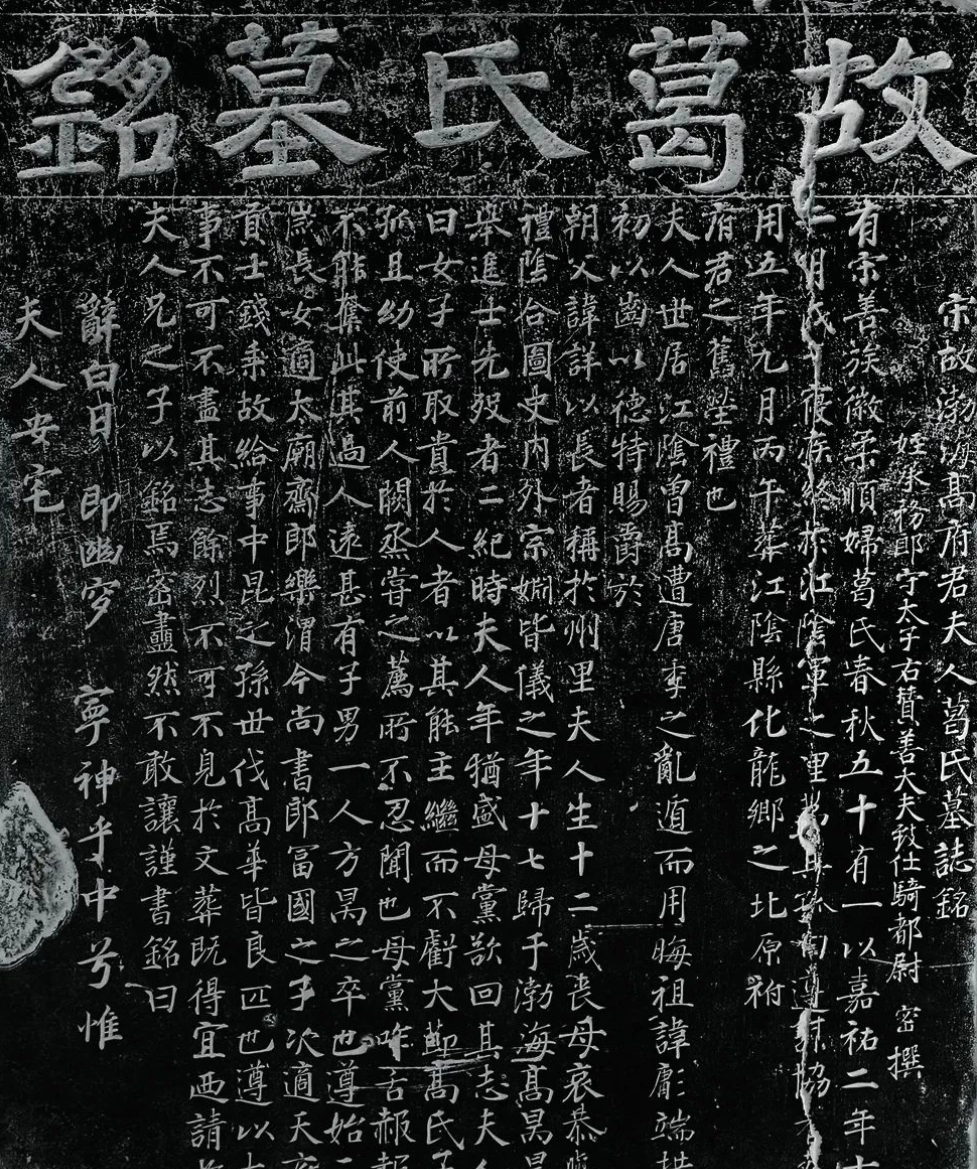 故葛氏墓銘
宋故渤海髙府君夫人葛氏墓誌銘
姪承務郎守太子右贊善大夫致仕騎都尉 密 撰
有宋善族徽柔順婦葛氏春秋五十有一以嘉祐二年十
月 疾終於江陰軍之里
用五年九月丙午葬江陰縣化龍鄉之北原祔
府君之舊塋禮也
夫人世居江陰曽髙遭唐季之亂遁而用晦祖諱彫端拱
初以齒以德特賜爵於
朝父諱詳以長者稱於州里夫人生十二歲喪母哀恭
禮陰合圖史内外宗婣皆儀之年十七歸乎渤海髙
舉進士先殁者二紀時夫人年猶盛母黨欲回其志夫人
曰女子所取貴於人者以其能主繼而不虧大莭髙氏子
孤且幼使前人闕烝甞之薦所不忍聞也母黨咋舌赧
不能奪此其過人遠甚有子男一人方昺之卒也遵始二
嵗長女適太廟齋郎樂渭今尚書郎冨國之子次適天
貢士錢耒故給事中昆之孫世伐髙華皆良匹也遵以
事不可不盡其志餘烈不可不見於文葬既得宜而請
夫人兄之子以銘焉密盡然不敢讓謹書銘曰
辭白日 即幽穸 寧神乎中兮惟
夫人安宅